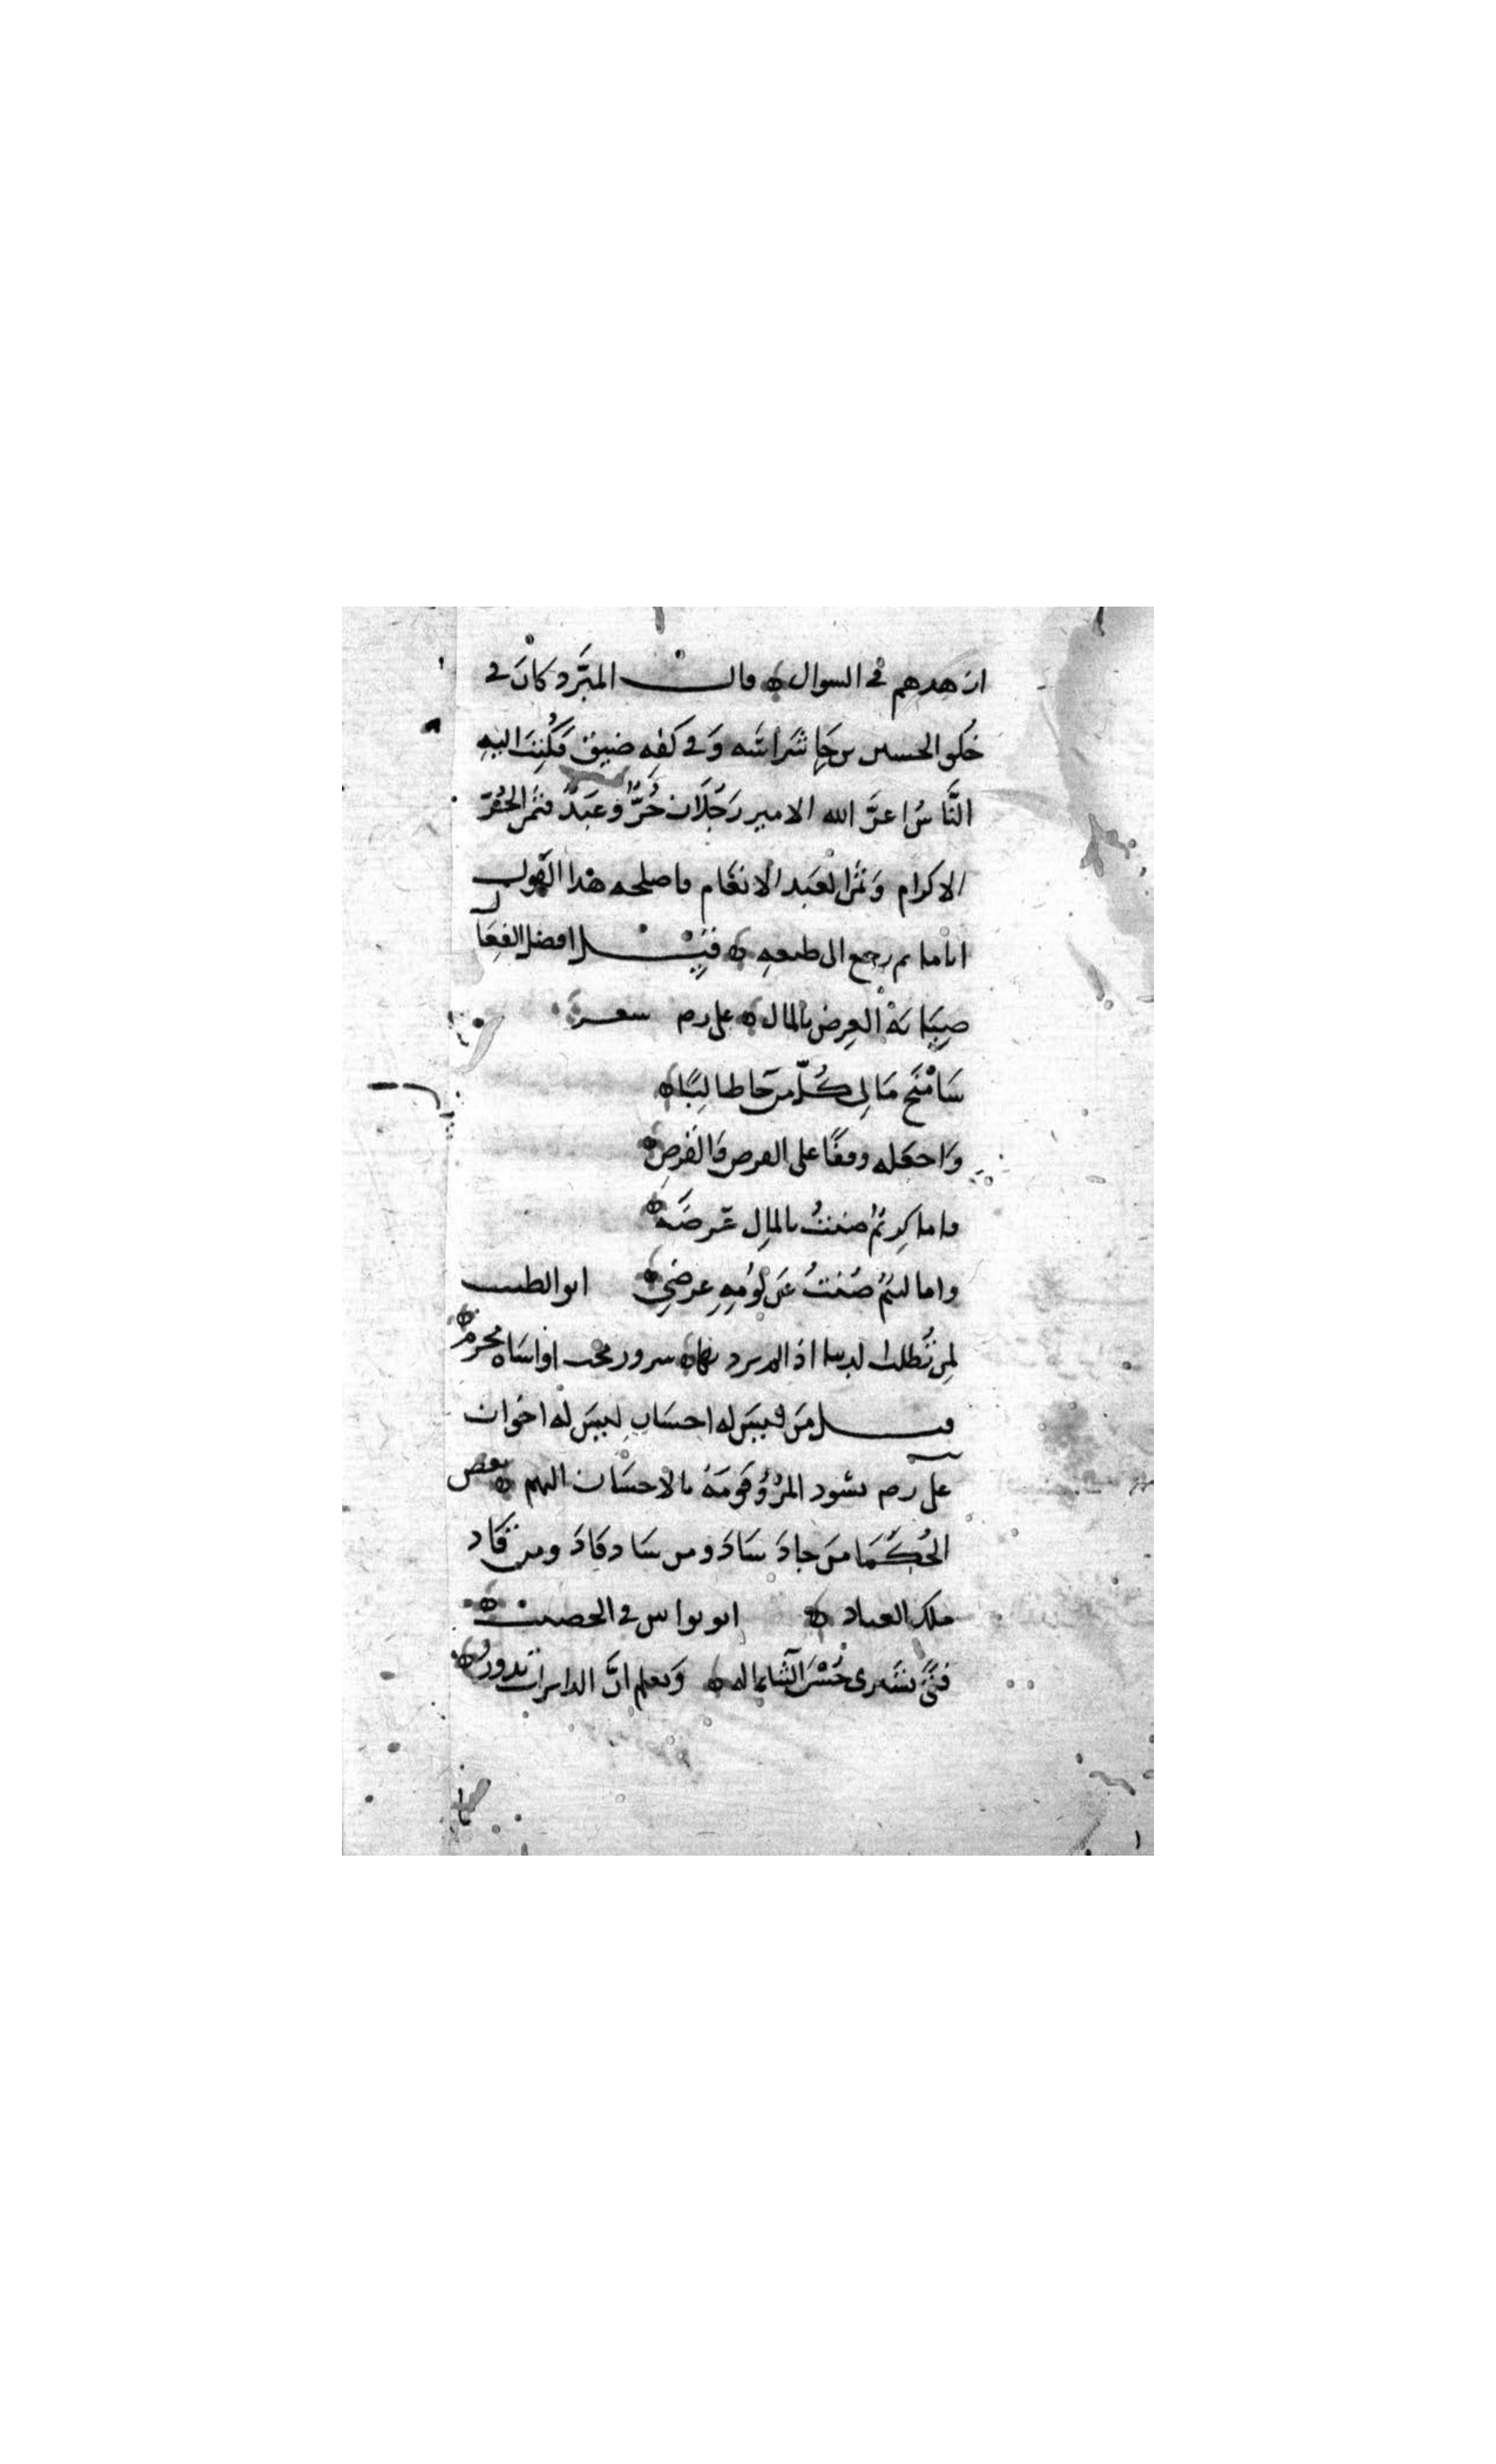 ازهدهم في السوال ه قال المبَرَّد كانَ في
خُلُو الحسين بن رجا شَراسَه وَفي كفِه ضيق فكُتِبَ اليهِ
النَّاسُ اعزَّ الله الامير رَجُلَان حُرٌّ وعَبدٌ فثمن الحُرّ
الاكرام وَثمن العَبد الانعَام فاصلحه هذا القول
اياما ثم رجع الى طبعهِ ه قيل افضل الفِعَال
صِيَانة العِرض بالمال ه على رم شعر
سَامْنَح مَالي كُلّ من جَا طالبًا ه
وَاجعَله وقفًا على القرض وَالفَرضِ ه
فاما كرِيمٌ صُنتُ بالمال عِرضَه ه
واما لئيمٌ صُنتُ عَن لُومِهِ عِرضِي ه ابو الطيب
لِمن تُطلب الدنيا اذا لم ترد بها ه سرور محب او اسَاة مجرم ه
قيل مَن ليسَ له احسَان ليسَ له اخوان
على رم يسُود المرُؤُ قومَهُ بالاحسَان اليهم ه بعض
الحُكَمَا مَن جادَ سَادَ ومن سَاد قَادَ ومن قَاد
ملك العباد ه ابو نواس في الخصيب ه
فتًى يشترى حُسْنَ الثَّنا بماله ه وَيعلم انَّ الدايرات تدورُ ه